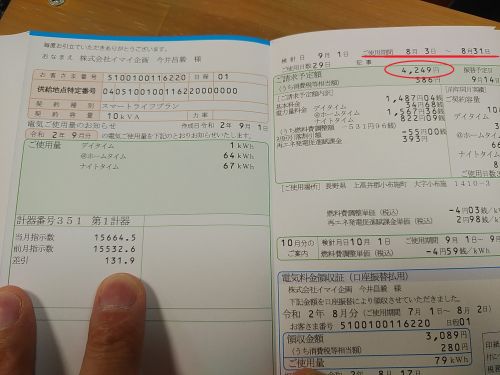 毎度お引立ていただきありがとうございます。
おなまえ 株式会社イマイ企画 今井昌毅 様
お客さま番号 5100100116220 日程 01
供給地点特定番号 0405100100116220000000
契約種別 スマートライフプラン
契約容量 10kVA 力率
電気ご使用量のお知らせ 作成日令和 2年 9月
令和 2年 9月分 の電気ご使用量を下記のとおりお知らせいたします。
ご使用量 デイタイム 1kWh
@ホームタイム 64kWh
ナイトタイム 67kWh
計器番号351 第1計器
当月指示数 15664.5
前月指示数 15532.6
差引 131.9
検針日 9月 1日 ご使用期間 8月 3日 ～ 8月31日
ご使用日数29日 記事
ご請求予定額 4,249円 振替予定日
(うち消費税等相当額) 386円 9月14
(ご請求予定額内訳)
基本料金 1,487円04銭
電力量料金 デイタイム 34円68銭
@ホームタイム 1,567円36銭
ナイトタイム 822円09銭
(うち燃料費調整額 -531円96銭)
口座振替割引額 -55円00銭
再エネ発電促進賦課金 393円
ご契約容量
[ご使用場所] 長野県 上高井郡小布施町 大字小布施 1410-3
燃料費調整単価 (税込) -4円03銭/k
再エネ発電促進賦課金単価 (税込) 2円98銭/k
10月分の 検針日10月 1日 ご使用期間 9月 1日～9
ご案内 燃料費調整単価 (税込) -4円59銭/kW
電気料金領収証 (口座振替払用)
株式会社イマイ企画 今井昌毅 様
下記金額を口座振替により領収させていただきました。
令和 2年 8月分 (ご使用期間 7月 1日～ 8月 2日)
お客さま番号 5100100116220 日程01
領収金額 3,089円
(うち消費税等相当額) 280円
ご使用量 79kWh
8月17